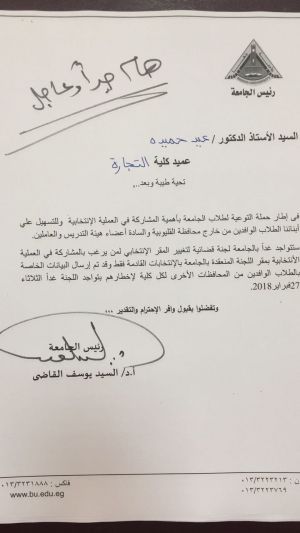 رئيس الجامعة
هام جداً وعاجل
السيد الأستاذ الدكتور / عيد حميده
عميد كلية التجارة
تحية طيبة وبعد،،،
في إطار حملة التوعية لطلاب الجامعة بأهمية المشاركة في العملية الإنتخابية وللتسهيل علي
أبنائنا الطلاب الوافدين من خارج محافظة القليوبية والسادة أعضاء هيئة التدريس والعاملين.
ستتواجد غداً بالجامعة لجنة قضائية لتغيير المقر الإنتخابي لمن يرغب بالمشاركة في العملية
الأنتخابية بمقر اللجنة المنعقدة بالجامعة بالإنتخابات القادمة فقط وقد تم إرسال البيانات الخاصة
بالطلاب الوافدين من المحافظات الأخرى لكل كلية لإخطارهم بتواجد اللجنة غداً الثلاثاء
27فبراير2018.
وتفضلوا بقبول وافر الإحترام والتقدير ...
رئيس الجامعة
أ.د/ السيد يوسف القاضى
ن : ٠١٣/٣٢٢٣٢١٣
٠١٣/٣٢٢٣٧٦٩
فاكس : ٠١٣/٣٢٣١٨٨٨
www.bu.edu.eg